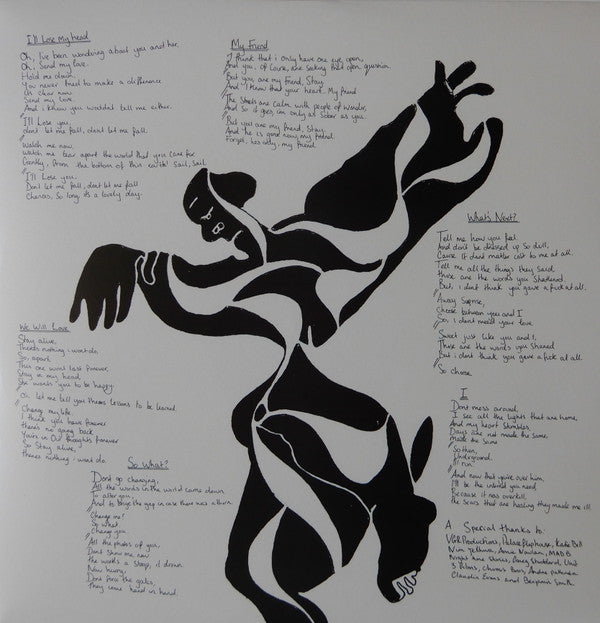 I'll Lose my head
Oh, I've been wondering about you and her,
Oh, Send my love.
Hold me close.
You never tried to make a difference
Oh dear now
Send my love.
And I knew you wouldn't tell me either.
I'll Lose you.
don't let me fall, don't let me fall.
Watch me now,
watch me tear apart the world that you care for
Gently, from the bottom of this earth Sail, Sail
I'll Lose you.
Don't let me fall, don't let me fall
Chances, So long, it's a lovely day.
My Friend
I think that i only have one eye open,
And you, of course, are seeking that open question.
But you are my friend, Stay
And "I know that your heart. My friend
The Streets are calm with people of wonder,
And so it goes, im only as sober as you.
But you are my friend, Stay,
And he is good now, my friend.
Forget, hes ally, my friend.
What's Next?
Tell me how you feel
And don't be dressed up So dull,
Cause it dont matter cost to me at all.
Tell me all the things they said,
those are the words you Shattered.
But, i dont think you gave a fuck at all.
Away Suprise,
Choose between you and I
So, i dont need your love.
Sweet just like you and I,
Those are the words you Shared
But i dont think you gave a fuck at all.
So choose.
We Will Love
Stay alive,
theres nothing i wont do.
So, apart
This one wont last forever,
Stay in my head
She wants you to be happy.
Oh let me tell you theres lessons to be learned.
Change my life,
I think you knows forever
theres no going back
Yours in Our thoughts forever
So Stay alive,
theres nothing i wont do.
So What?
Dont go changing,
All the words in the world came down
To alter you,
And to bridge the gap in case there was a turn.
Change me!
So what
Change you.
All the photos of you,
Dont Show me now
the words a stoop, it drown
Now hurry,
Dont force the gates,
They come hand in hand.
I
Dont mess around,
I see all the lights that are home.
And my heart Stumbles
Days like not made the same
made the same
So then,
Underground,
I run.
And now that youre over him,
I'll be the world you need
Because it was overkill
the Scars that are healing they made me ill.
A Special thanks to:
VGR Productions, Palace Playhouse, Kate Bell
Nim Jethwa, Anna Vaughan, MADB
Night time Stories, Darcy Studdard, Unit
3 Films,
Claudia Evans and Benjamin Smith.